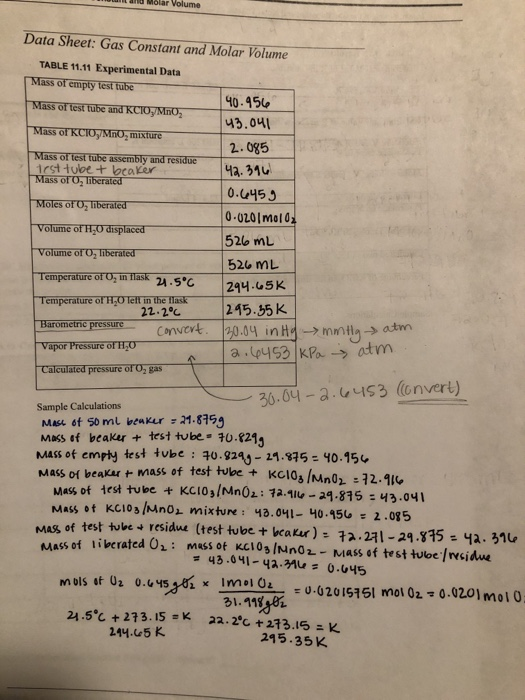 Molar Volume
Data Sheet: Gas Constant and Molar Volume
TABLE 11.11 Experimental Data
Mass of empty test tube 40.956
Mass of test tube and KClO₃/MnO₂ 43.041
Mass of KClO₃/MnO₂ mixture 2.085
Mass of test tube assembly and residue 42.396
test tube + beaker
Mass of O₂ liberated 0.645 g
Moles of O₂ liberated 0.0201 mol O₂
Volume of H₂O displaced 526 mL
Volume of O₂ liberated 526 mL
Temperature of O₂ in flask 21.5°C 294.65K
Temperature of H₂O left in the flask 295.35K
22.2°C
Barometric pressure convert. 30.04 in Hg → mmHg → atm
Vapor Pressure of H₂O 2.6453 KPa → atm
Calculated pressure of O₂ gas
30.04 - 2.6453 (convert)
Sample Calculations
Mass of 50 mL beaker = 29.875g
Mass of beaker + test tube = 70.829g
Mass of empty test tube : 70.829g - 29.875 = 40.956
Mass of beaker + mass of test tube + KClO₃/MnO₂ = 72.916
Mass of test tube + KClO₃/MnO₂ : 72.916 - 29.875 = 43.041
Mass of KClO₃/MnO₂ mixture : 43.041 - 40.956 = 2.085
Mass of test tube + residue (test tube + beaker) = 72.271 - 29.875 = 42.396
Mass of liberated O₂ : mass of KClO₃/MnO₂ - Mass of test tube/residue
= 43.041 - 42.396 = 0.645
mols of O₂ 0.645 g O₂ × 1 mol O₂ / 31.998 g O₂ = 0.02015751 mol O₂ = 0.0201 mol O
21.5°C + 273.15 = K 22.2°C + 273.15 = K
294.65 K 295.35 K